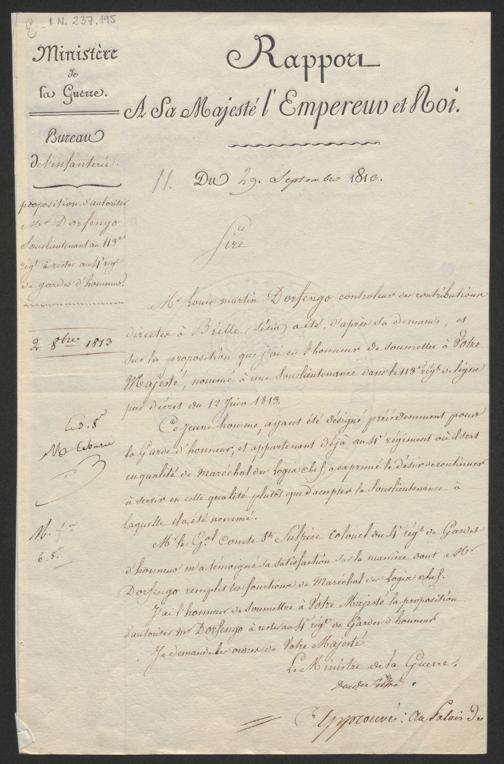 1 N. 237.195
Ministère
de
la Guerre.
Bureau
de l'infanterie.
Rapport
A Sa Majesté l'Empereur et Roi.
11. Du 29. Septembre 1813.
proposition d'autoriser
Mr Dorsengo
Souslieutenant au 113e
régt à rester au 4e régt
de gardes d'honneur.
2 8bre 1813
Sire
Mr Louis martin Dorsengo controleur des contributions
directes à Bielle (Sésia) a été, d'après sa demande, et
sur la proposition que j'ai eu l'honneur de soumettre à Votre
Majesté, nommé à une Souslieutenance dans le 113e régt de ligne
par décret du 12 Juin 1813.
Ce jeune homme, ayant été désigné précédemment pour
la Garde d'honneur, et appartenant déjà au 4e régiment où il sert
en qualité de Maréchal des Logis chef, a exprimé le désir de continuer
à servir en cette qualité plutôt que d'accepter la Souslieutenance à
laquelle il a été nommé.
Mr le Gal comte St Sulpice colonel du 4e régt de Gardes
d'honneur m'a témoigné sa satisfaction sur la manière dont Mr
Dorsengo remplit les fonctions de Maréchal des Logis chef.
J'ai l'honneur de soumettre à Votre Majesté la proposition
d'autoriser mr Dorsengo à rester au 4e régt de Gardes d'honneur
Je demande les ordres de Votre Majesté
Le Ministre de la Guerre.
Approuvé : au Palais de